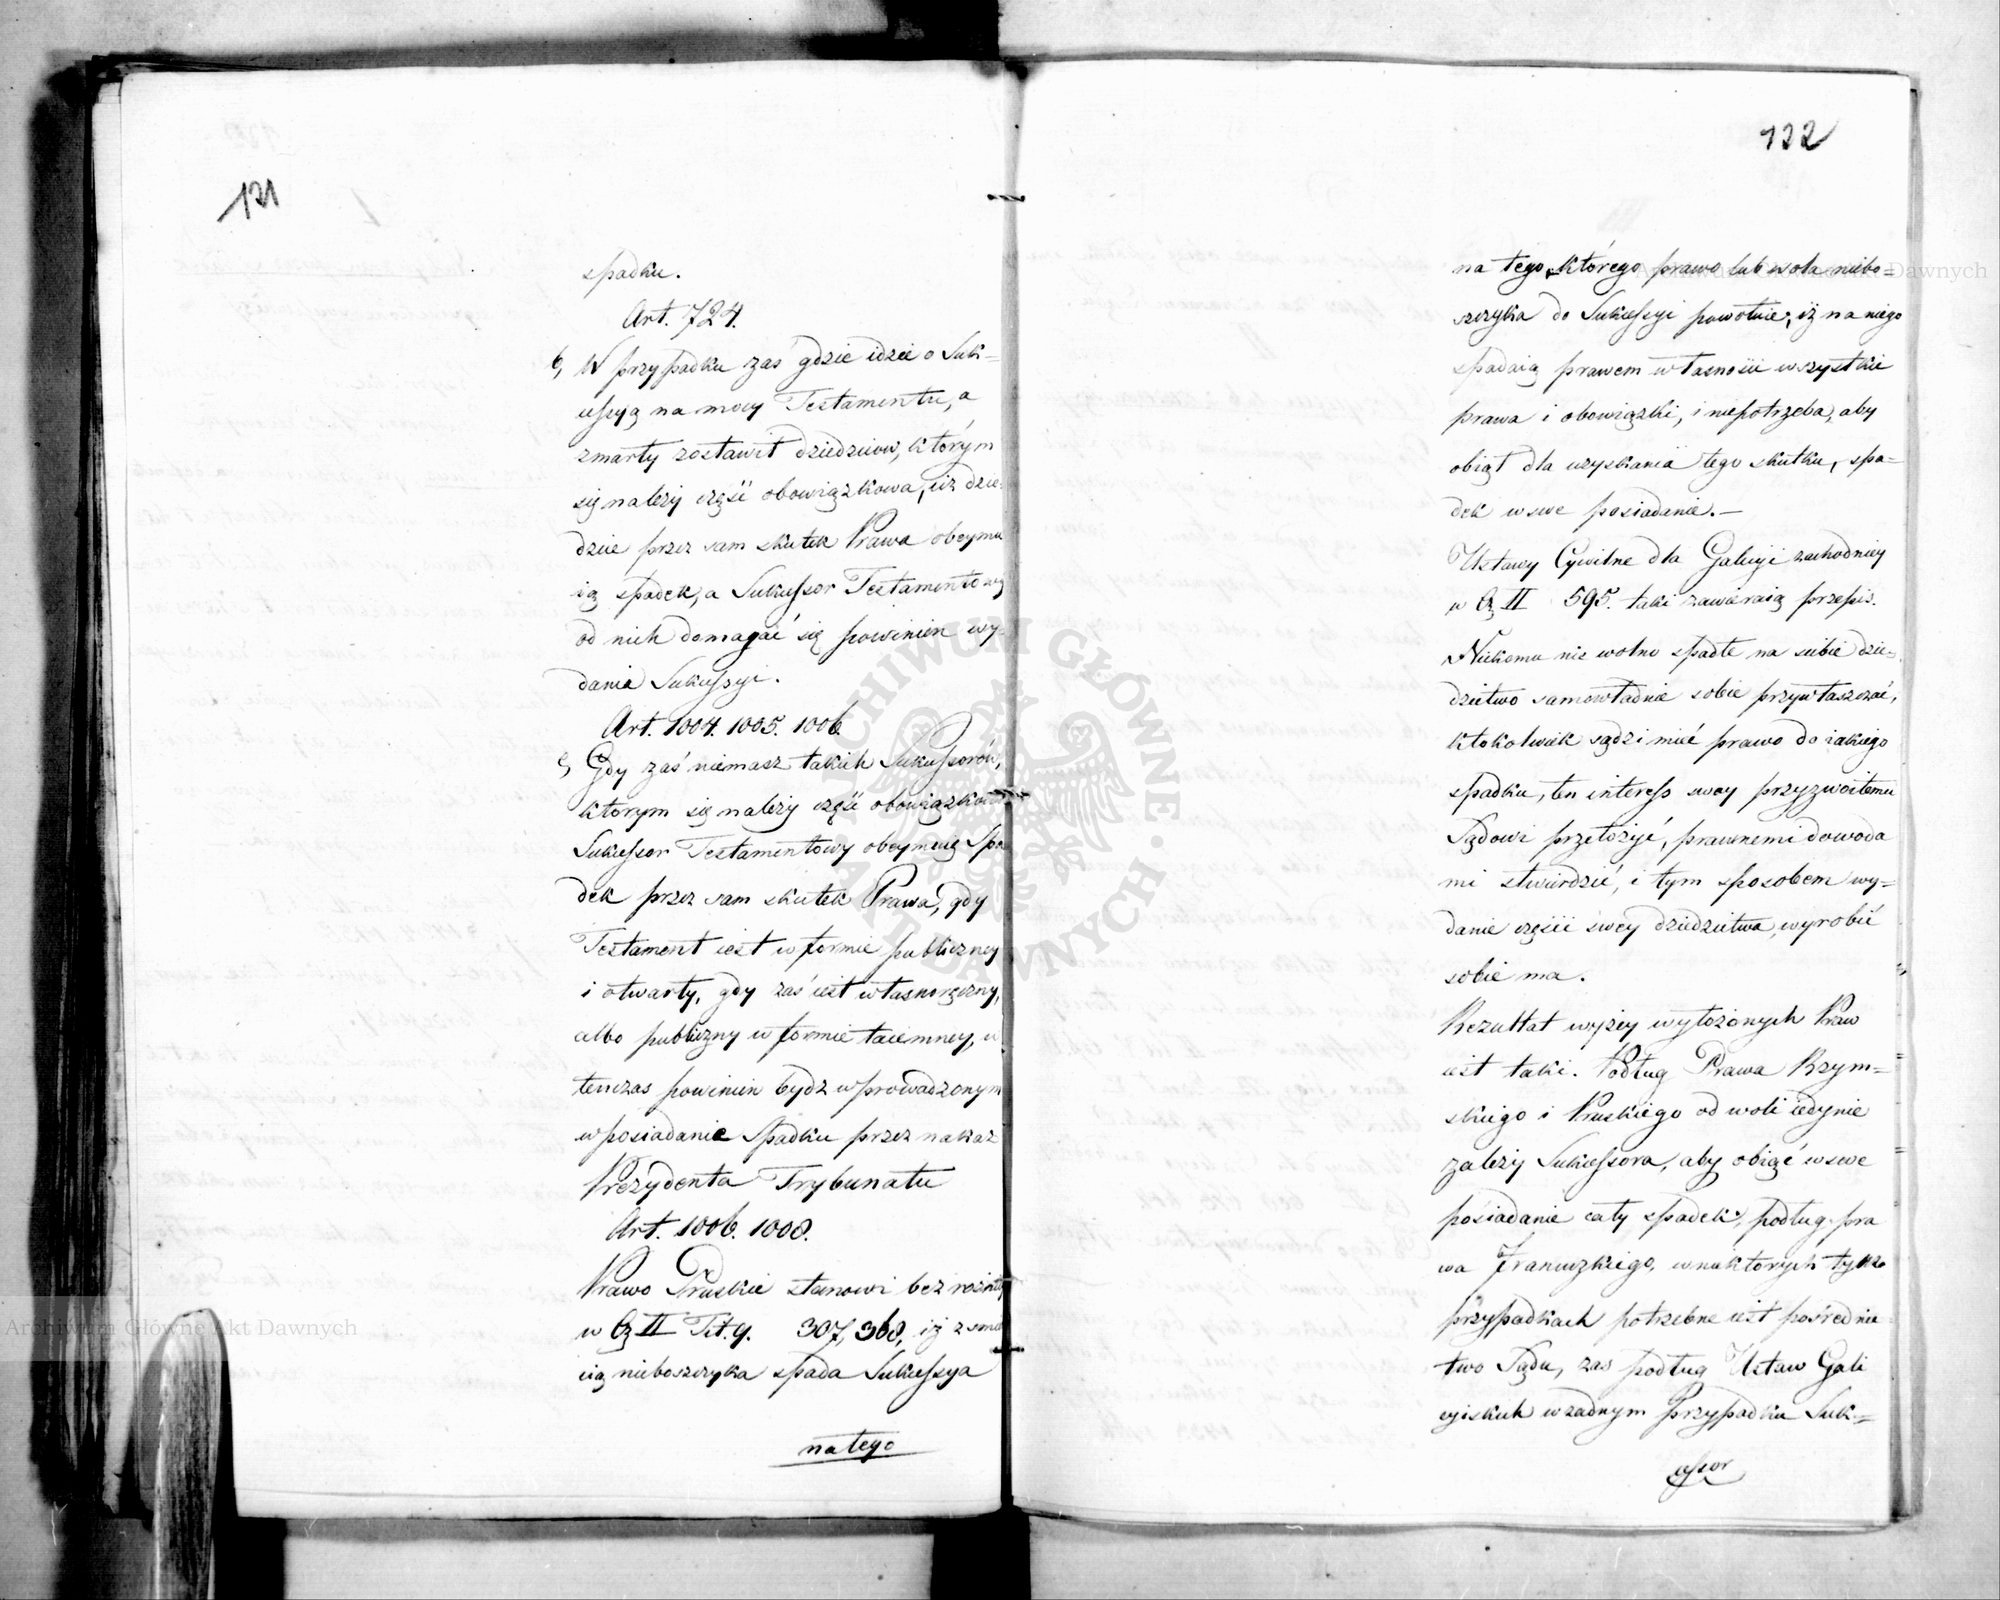 121
spadku.
Art. 724.
b, W przypadku zaś gdzie idzie o Suk=
cessyą na mocy Testamentu, a
zmarły zostawił dziedziców, którym
się należy część obowiązkowa, ciż dzie=
dzice przez sam skutek Prawa obeymu
ią spadek, a Sukcessor Testamentowy
od nich domagać się powinien wy=
dania Sukcessyi.
Art. 1004. 1005. 1006
c, Gdy zaś niemasz takich Sukcessorów,
ktorym się należy część obowiązkowa
Sukcessor Testamentowy obeymuie Spa
dek przez sam skutek Prawa, gdy
Testament iest w formie publiczney
i otwarty, gdy zaś iest własnoręczny,
albo publiczny w formie taiemney, w
tenczas powinien bydz wprowadzonym
w posiadanie Spadku przez nakaz
Prezydenta Trybunału
Art. 1006. 1008.
Prawo Pruskie stanowi bez rożnicy
w Cz II Tit. 9. 367, 368, iż z smier
cią nieboszczyka spada Sukcessya
na tego
122
na tego, którego prawo lub wola niebo=
szczyka do Sukcessyi powołuie; iż na niego
spadaią prawem własności wszystkie
prawa i obowiązki, i niepotrzeba, aby
obiął dla uzyskania tego skutku, spa=
dek w swe posiadanie.—
Ustawy Cywilne dla Galicyi zachodniey
w Cz II 595. taki zawieraią przepis.
Nikomu nie wolno spadłe na siebie dzie=
dzictwo samowładnie sobie przywłaszczać,
ktokolwiek sądzi mieć prawo do iakiego
spadku, ten interess swoy przyzwoitemu
Sądowi przełożyć, prawnemi dowoda
mi stwierdzić, i tym sposobem wy=
danie części swey dziedzictwa, wyrobić
sobie ma.
Rezultat wyżey wyłożonych Praw
iest taki. Podług Prawa Rzym=
skiego i Pruskiego od woli iedynie
zależy Sukcessora, aby obiąć w swe
posiadanie cały spadek, podług pra
wa Francuzkiego, w niektorych tylko
przypadkach potrzebne iest pośrednic
two Sądu, zas podług Ustaw Gali
cyiskich w zadnym Przypadku Suk=
cessor
Archiwum Główne Akt Dawnych
Archiwum Główne Akt Dawnych
ARCHIWUM GŁÓWNE AKT DAWNYCH